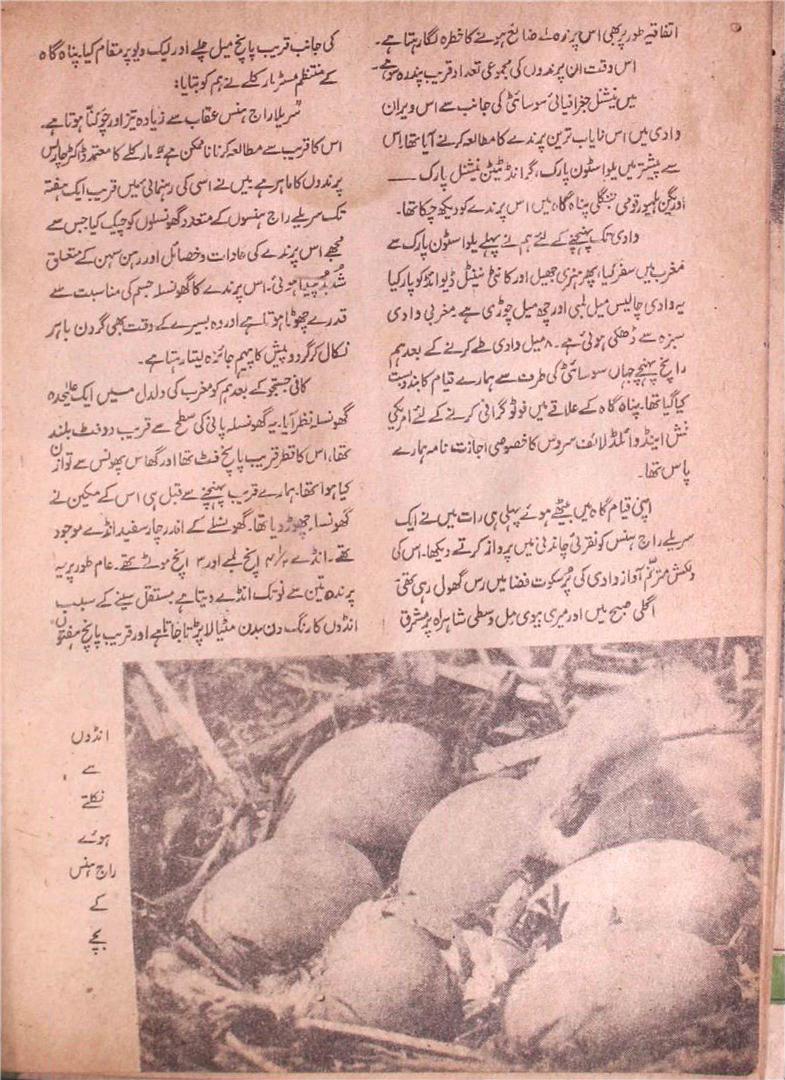 اتفاقیہ طور پر بھی اس پرندہ کے ضائع ہونے کا خطرہ لگا رہتا ہے۔
اس وقت ان پرندوں کی مجموعی تعداد قریب پندرہ سو ہے۔
میں نیشنل جغرافیائی سوسائٹی کی جانب سے اس ویران
وادی میں اس نایاب ترین پرندے کا مطالعہ کرنے آیا تھا۔ اس
سے پیشتر میں یلواسٹون پارک، گرانڈ ٹیٹن نیشنل پارک ——
اور قومی جنگلی پناہ گاہ میں اس پرندے کو دیکھ چکا تھا۔
وادی تک پہنچنے کے لئے ہم نے پہلے یلواسٹون پارک سے
مغرب میں سفر کیا، پھر ہنری جھیل اور کانٹی نینٹل ڈیوائڈ کو پار کیا
یہ وادی چالیس میل لمبی اور چھ میل چوڑی ہے۔ مغربی وادی
سبزہ سے ڈھکی ہوئی ہے۔ ۸ میل وادی طے کرنے کے بعد ہم
رانچ پہنچے جہاں سوسائٹی کی طرف سے ہمارے قیام کا بندوبست
کیا گیا تھا۔ پناہ گاہ کے علاقے میں فوٹو گرافی کرنے کے لئے امریکی
فش اینڈ وائلڈ لائف سروس کا خصوصی اجازت نامہ ہمارے
پاس تھا۔
اپنی قیام گاہ میں بیٹھے ہوئے پہلی ہی رات میں نے ایک
سریلے راج ہنس کو نقرئی چاندنی میں پرواز کرتے دیکھا۔ اس کی
دلکش مترنم آواز وادی کی پُرسکوت فضا میں رس گھول رہی تھی۔
اگلی صبح میں اور میری بیوی مل وسطی شاہراہ پر مشرق
کی جانب قریب پانچ میل چلے اور لیک ویو پر مقام کیا۔ پناہ گاہ
کے منتظم مسٹر مارکلے نے ہم کو بتایا:
"سریلا راج ہنس عقاب سے زیادہ تیز اور چوکنا ہوتا ہے۔
اس کا قریب سے مطالعہ کرنا ناممکن ہے" مارکلے کا معتمد ڈاکٹر چارلس
پرندوں کا ماہر ہے۔ میں نے اسی کی رہنمائی میں قریب ایک ہفتہ
تک سریلے راج ہنسوں کے متعدد گھونسلوں کو چیک کیا جس سے
مجھے اس پرندے کی عادات و خصائل اور رہن سہن کے متعلق
شُدبُد پیدا ہوئی۔ اس پرندے کا گھونسلہ جسم کی مناسبت سے
قدرے چھوٹا ہوتا ہے اور وہ بسیرے کے وقت بھی گردن باہر
نکال کر گردوپیش کا پیہم جائزہ لیتا رہتا ہے۔
کافی جستجو کے بعد ہم کو مغرب کی دلدل میں ایک علیٰحدہ
گھونسلہ نظر آیا۔ یہ گھونسلہ پانی کی سطح سے قریب دو فٹ بلند
تھا، اس کا قطر قریب پانچ فٹ تھا اور گھاس پھونس سے توازن
کیا ہوا تھا۔ ہمارے قریب پہنچنے سے قبل ہی اس کے مکین نے
گھونسلہ چھوڑ دیا تھا۔ گھونسلے کے اندر چار سفید انڈے موجود
تھے۔ انڈے ۴/۲ انچ لمبے اور ۳ انچ موٹے تھے۔ عام طور پر یہ
پرندہ تین سے نو تک انڈے دیتا ہے۔ مستقل سینے کے سبب
انڈوں کا رنگ دن بدن مٹیالا پڑتا جاتا ہے اور قریب پانچ ہفتوں
انڈوں
سے
نکلتے
ہوئے
راج ہنس
کے
بچے